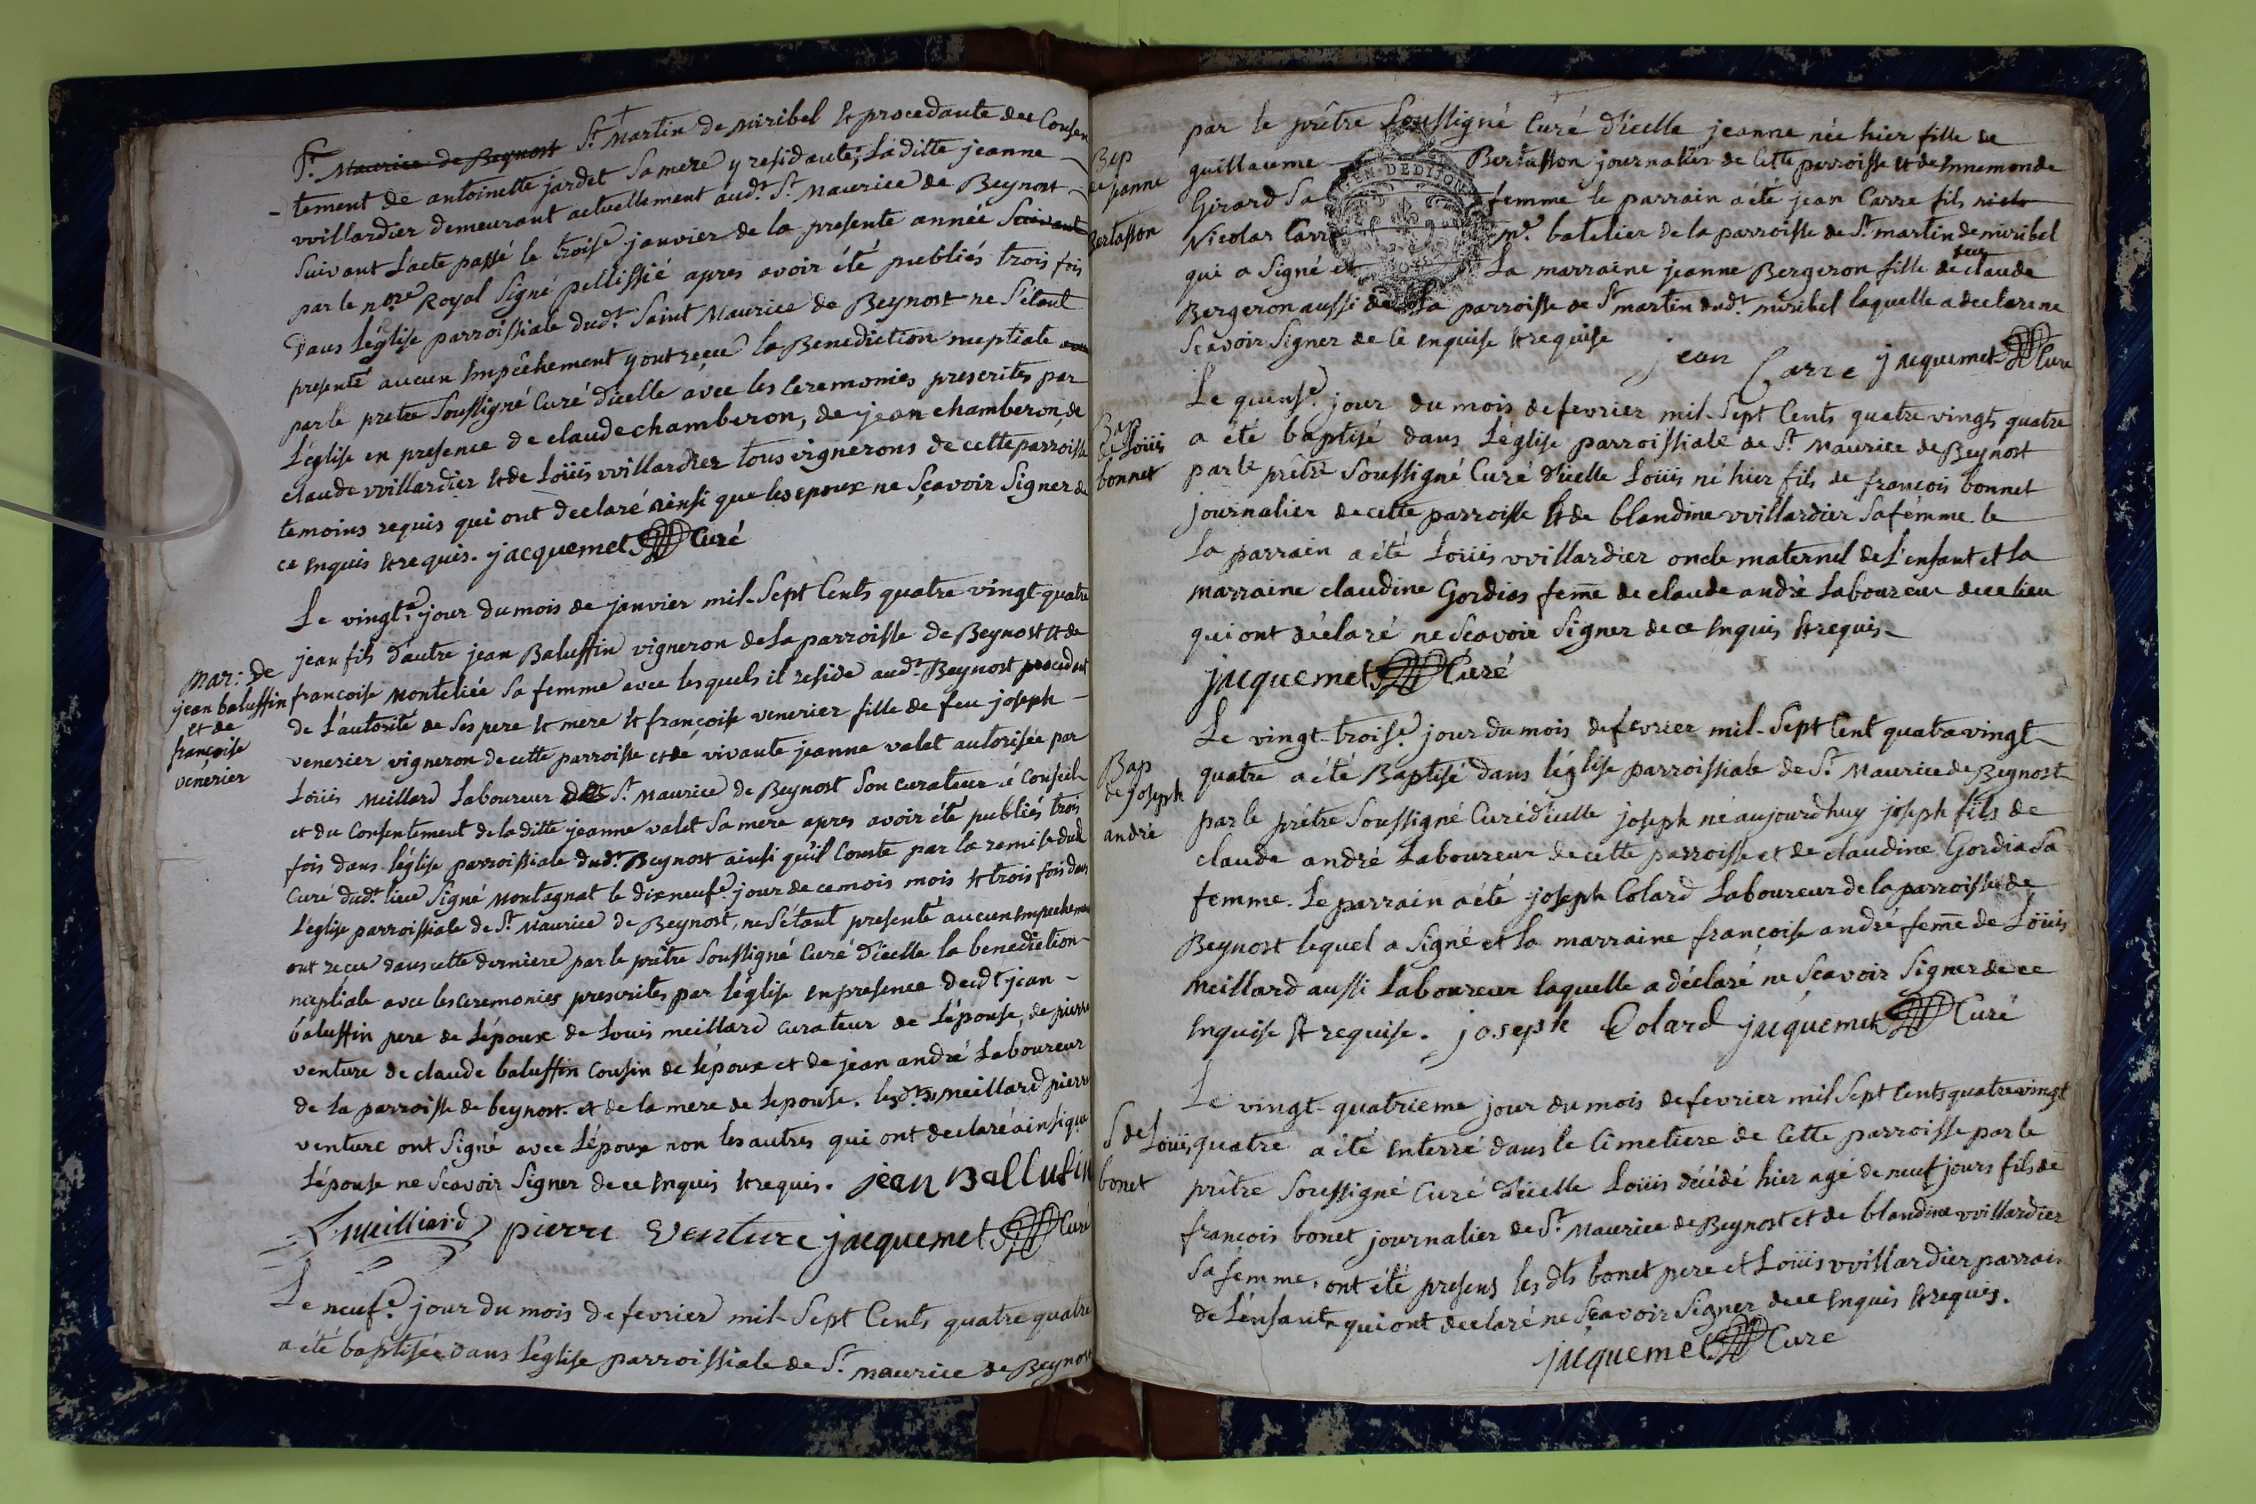 St. Maurice de Beynost St. Martin de miribel & procedante du Consen
tement de antoinette jardet sa mere y residante, Laditte jeanne
vvillardier demeurant actuellement audt. St. Maurice de Beynost
suivant L'acte passé le troise. janvier de la presente année suivant
par le nore. Royal Signé pellissié apres avoir été publiés trois fois
Dans L'eglise parroissiale dudt. Saint Maurice de Beynost ne S'etant
presenté aucun Empêchement y ont reçeu la Benediction nuptiale
par le pretre Soussigné Curé d'icelle avec les Ceremonies prescrites par
L'église en presence de claude chamberon, de jean chamberon, de
claude vvillardier & de Loüis vvillardier tous vignerons de cette parroisse
temoins requis qui ont declaré ainsi que les epoux ne Sçavoir Signer de
ce Enquis & requis. jacquemet Curé
Mar: de
jean baluffin
et de
françoise
venérier
Le vingte. jour du mois de janvier mil-Sept Cents quatre vingt-quatre
jean fils d'autre jean Baluffin vigneron de la parroisse de Beynost & de
francoise Monteliée sa femme avec lesquels il reside audt. Beynost procedant
de L'autorité de ses pere & mere & françoise venerier fille de feu joseph
venerier vigneron de cette parroisse et de vivante jeanne valet autorisée par
Loüis Meillard Laboureur St. Maurice de Beynost son curateur é Conseil
et du Consentement de la ditte jeanne valet sa mere apres avoir été publiés trois
fois dans l'église parroissiale dudt. Beynost ainsi qu'il Conste par la remise dudt
Curé dudt. lieu Signé Montagnat le dixneufe. jour de ce mois mois & trois fois dans
L'église parroissiale de St. Maurice de Beynost, ne S'étant presenté aucun Empechement
ont reçu dans cette derniere par le prêtre Soussigné Curé d'icelle la benediction
nuptiale avec les ceremonies prescrites par l'église en presence dudt jean
baluffin pere de L'époux de Louis meillard curateur de L'épouse, de pierre
venture de claude baluffin Cousin de L'époux et de jean andré Laboureur
de la parroisse de beynost et de la mere de L'epouse. lesdts meillard pierre
venture ont Signé avec L'époux non les autres qui ont declaré ainsi que
L'épouse ne Sçavoir Signer de ce Enquis & requis. jean Ballufin
L. Meilliard pierre venture jacquemet Curé
Le neufe. jour du mois de fevrier mil-Sept Cents quatre quatre
a été baptisée dans L'église parroissiale de St. Maurice de Beynost
Bap
de jeanne
Bertasson
par le prêtre Soussigné Curé d'icelle jeanne née hier fille de
guillaume Bertasson journalier de Cette parroisse & de Ennemonde
Girard Sa femme le parrain a été jean Carre fils
Nicolas Carre me. batelier de la parroisse de St. martin de miribel
qui a Signé et La marraine jeanne Bergeron fille de feu claude
Bergeron aussi de La parroisse de St. martin dudt. miribel laquelle a declaré ne
Sçavoir Signer de Ce Enquise & requise
jean Carre jacquemet Curé
Bap
de Loüis
bonnet
Le quinse. jour du mois de fevrier mil-Sept Cents quatre vingts quatre
a été baptisé dans L'église parroissiale de St. Maurice de Beynost
par le prêtre Soussigné Curé d'icelle Loüis né hier fils de françois bonnet
journalier de cette parroisse & de blandine vvillardier Sa fémme le
La parrain a été Loüis vvillardier oncle maternel de L'enfant et La
marraine claudine Gordias feme de claude andré Laboureur de ce lieu
qui ont déclaré ne Sçavoir Signer de ce Enquis & requis
jacquemet Curé
Bap
de joseph
andré
Le vingt-troise. jour du mois de fevrier mil-Sept Cent quatre vingt
quatre a été Baptisé dans l'église parroissiale de St. Maurice de Beynost
par le prêtre Soussigné Curé d'icelle joseph né aujourd'huy joseph fils de
claude andré Laboureur de cette parroisse et de claudine Gordia Sa
femme. Le parrain a été joseph Colard Laboureur de la parroisse de
Beynost lequel a Signé et La marraine francoise andré feme de Loüis
meillard aussi Laboureur laquelle a déclaré ne Sçavoir Signer de ce
Enquise & requise. joseph Colard jacquemet Curé
S de Loüis
bonet
Le vingt-quatrieme jour du mois de fevrier mil Sept Cents quatre vingt
quatre a été Enterré dans le Cimetiere de Cette parroisse par le
prêtre Soussigné Curé d'icelle Loüis décédé hier agé de neuf jours fils de
françois bonet journalier de St. Maurice de Beynost et de blandine vvillardier
Sa femme, ont été presens les dts bonet pere et Loüis vvillardier parrain
de L'enfant qui ont declaré ne Sçavoir Signer de ce Enquis & requis.
jacquemet Curé